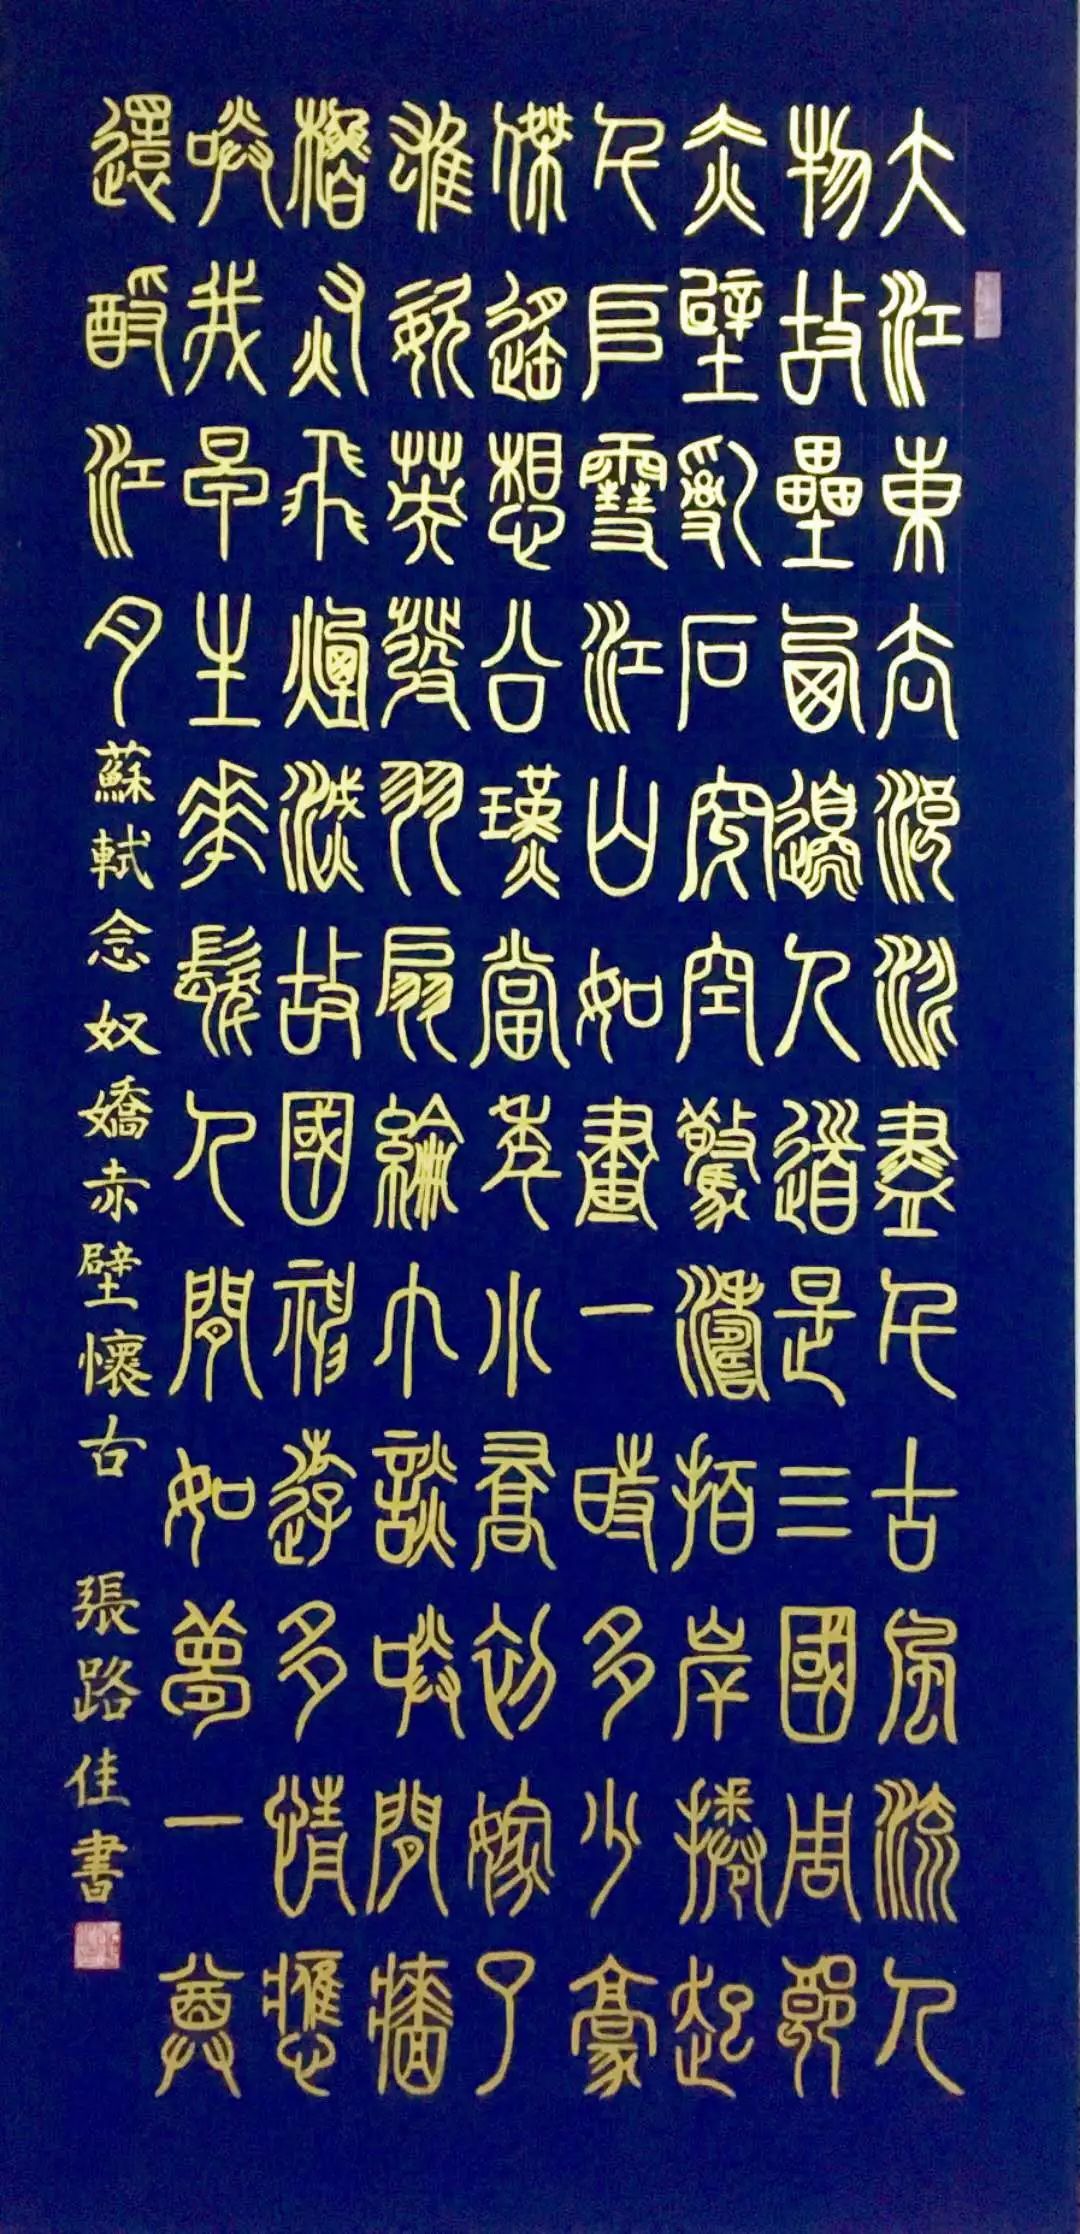 大江東去浪淘盡千古風流人
物故壘西邊人道是三國周郎
赤壁亂石穿空驚濤拍岸捲起
千堆雪江山如畫一時多少豪
傑遙想公瑾當年小喬初嫁了
雄姿英發羽扇綸巾談笑間檣
櫓灰飛煙滅故國神遊多情應
笑我早生華髮人間如夢一尊
還酹江月 蘇軾念奴嬌赤壁懷古 張路佳書